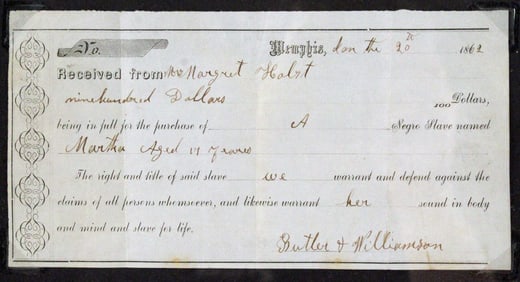 No. Memphis, Jan the 20th 1862
Received from Mr Margret Holst
ninehundred Dollars 100 Dollars,
being in full for the purchase of A Negro Slave named
Martha Aged 17 years
The right and title of said slave we warrant and defend against the
claims of all persons whomsoever, and likewise warrant her sound in body
and mind and slave for life.
Butler & Williamson